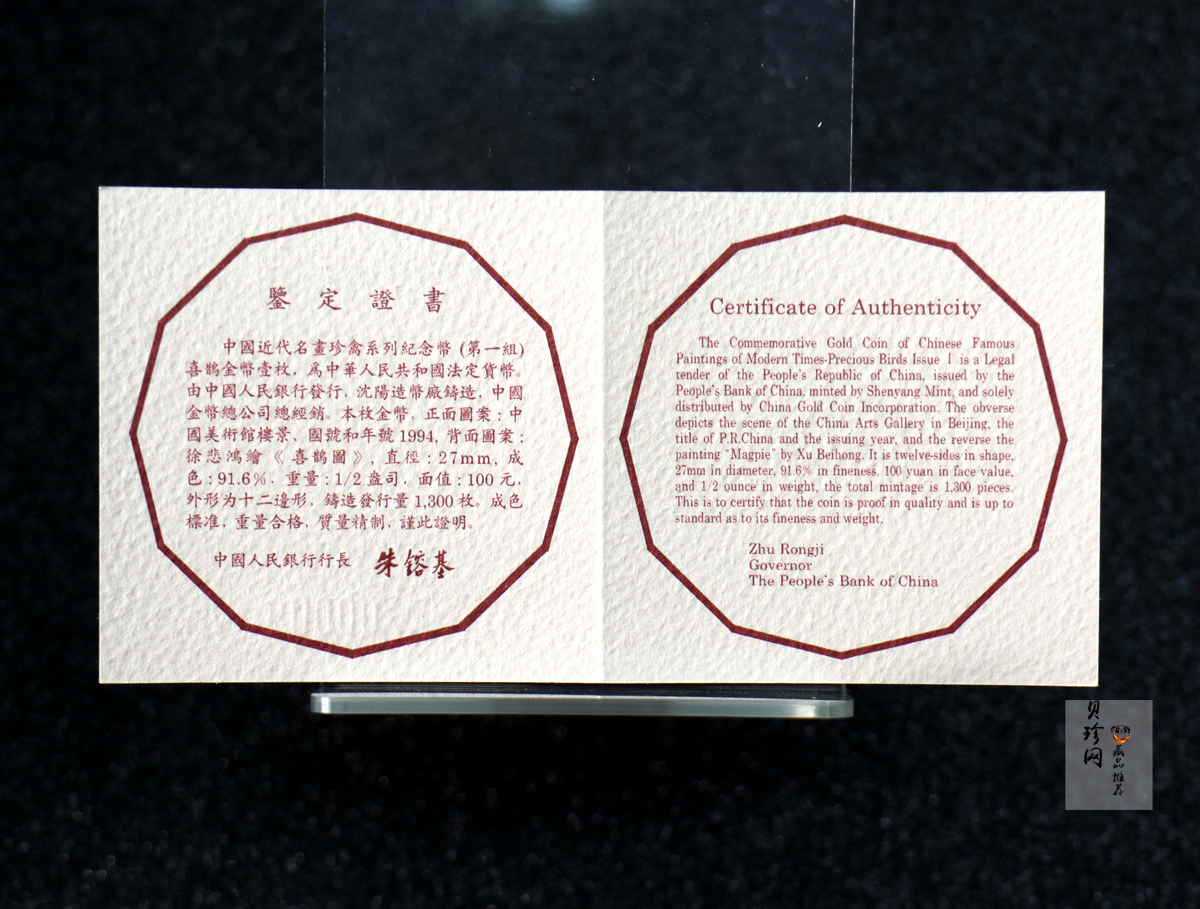 鑒定證書
中國近代名畫珍禽系列紀念幣 (第一組)
喜鵲金幣壹枚，爲中華人民共和國法定貨幣。
由中國人民銀行發行，沈陽造幣廠鑄造，中國
金幣總公司總經銷。本枚金幣，正面圖案：中
國美術館樓景、國號和年號1994，背面圖案：
徐悲鴻繪《喜鵲圖》，直徑：27mm，成
色：91.6%．重量：1/2盎司，面值：100元，
外形为十二邊形，鑄造發行量1,300枚。成色
標准，重量合格，質量精制，謹此證明。
中國人民銀行行長 朱鎔基
Certificate of Authenticity
The Commemorative Gold Coin of Chinese Famous
Paintings of Modern Times-Precious Birds Issue I is a Legal
tender of the People's Republic of China, issued by the
People's Bank of China, minted by Shenyang Mint, and solely
distributed by China Gold Coin Incorporation. The obverse
depicts the scene of the China Arts Gallery in Beijing, the
title of P.R.China and the issuing year, and the reverse the
painting "Magpie" by Xu Beihong. It is twelve-sides in shape,
27mm in diameter, 91.6% in fineness, 100 yuan in face value,
and 1/2 ounce in weight, the total mintage is 1,300 pieces.
This is to certify that the coin is proof in quality and is up to
standard as to its fineness and weight.
Zhu Rongji
Governor
The People's Bank of China
贝珍网
藏品推荐